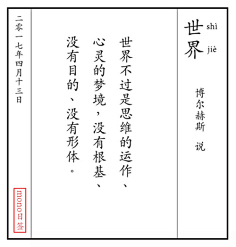 世界
shì
jiè
博尔赫斯 说
世界不过是思维的运作、
心灵的梦境，没有根基、
没有目的、没有形体。
二零一七年四月十三日
mono日签